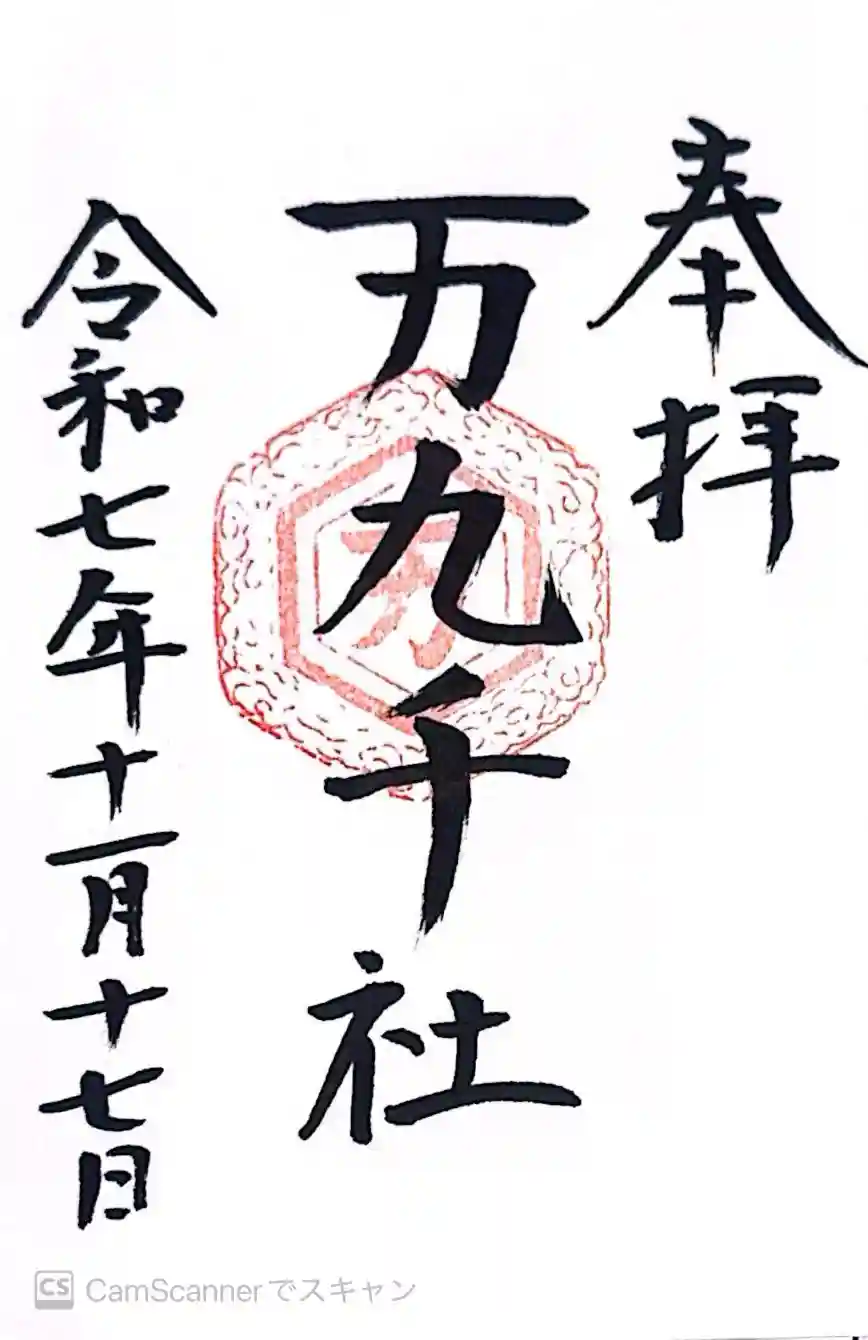 奉拝
万九千社
令和七年十一月十七日
CS CamScannerでスキャン